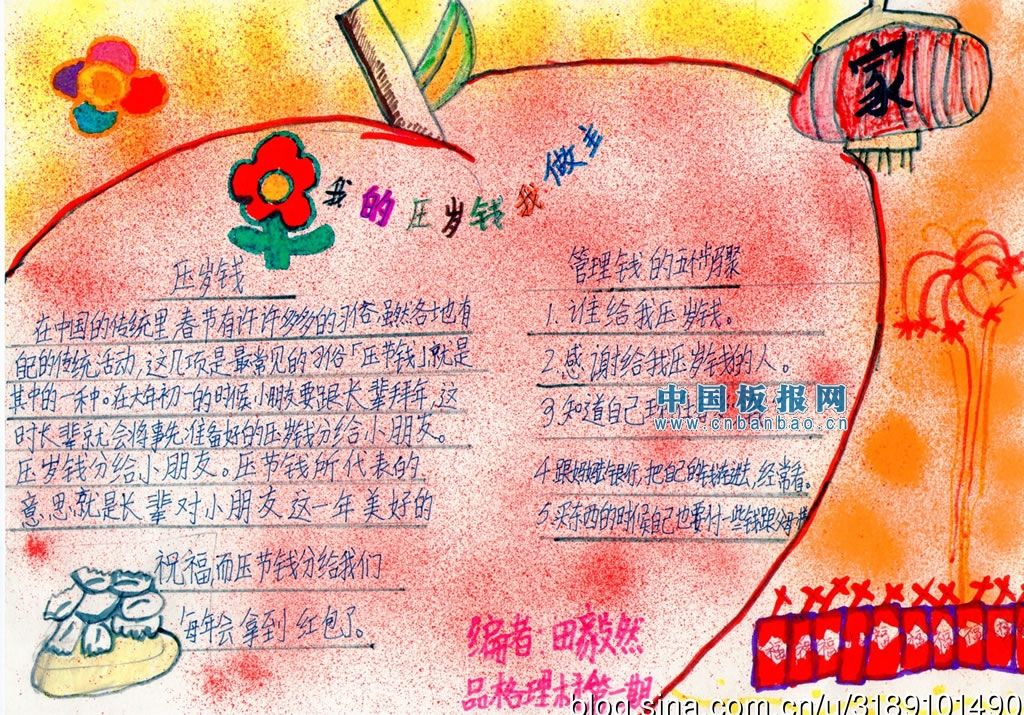 家
我的压岁钱我做主
压岁钱
在中国的传统里春节有许许多多的习俗虽然各地也有
的传统活动,这几项是最常见的习俗「压节钱」就是
其中的一种。在大年初一的时候小朋友要跟长辈拜年,这
时长辈就会将事先准备好的压岁钱分给小朋友。
压岁钱分给小朋友。压节钱所代表的
意思就是长辈对小朋友这一年美好的
祝福,而压节钱分给我们
每年会拿到红包了。
管理钱的五个步骤
1.谁给我压岁钱。
2.感谢给我压岁钱的人。
3.知道自己
4.跟妈妈去银行,把自己的钱存进去,经常看。
5.买东西的时候自己也要付一些钱跟父母
中国板报网
www.cnbanbao.cn
编者:田毅然
品格理财第一期
福 福 福 福 福 福 福
blog.sina.com.cn/u/3189101490